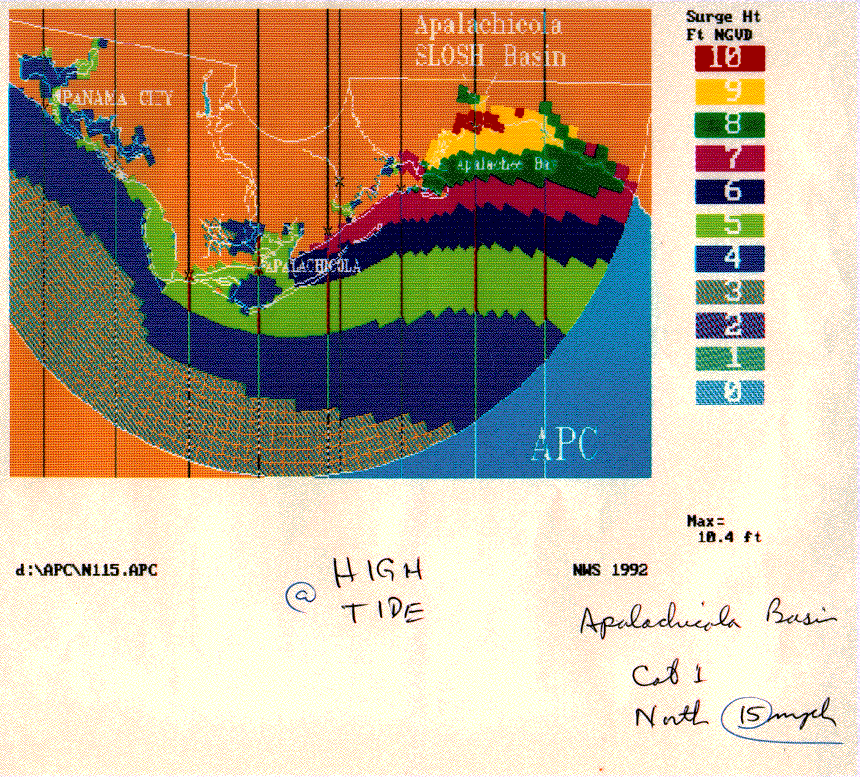 Apalachicola
SLOSH Basin
Surge Ht
Ft NGVD
10
9
8
7
6
5
4
3
2
1
0
PANAMA CITY
Apalachee Ba
APALACHICOLA
APC
Max=
10.4 ft
d:\APC\N115.APC
NWS 1992
@ HIGH
TIDE
Apalachicola Basin
Cat 1
North 15 mph